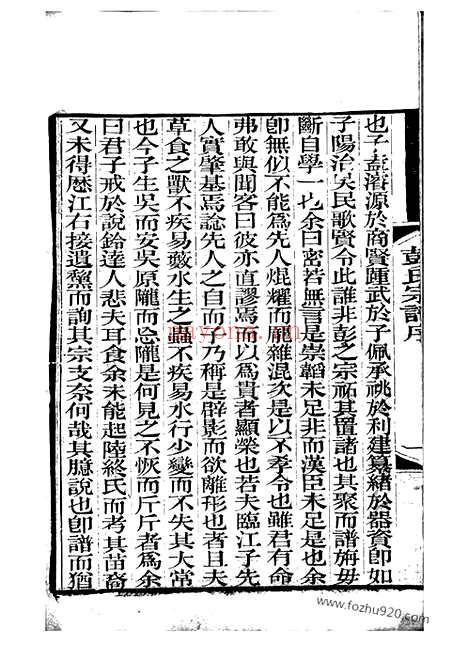 彭氏宗譜序
一
也子盍濬源於商賢踵武於子佩承祧於利建纂緒於器資卽如
子陽治吴民歌賢令此誰非彭之宗祏其置諸也其聚而譜姆毋
斷自學一也余曰密若無言是崇韜未足非而漢臣未足是也余
卽無似不能為先人焜耀而厖雜混次是以不孝令也雖君有命
弗敢與聞客曰彼亦直謬焉耳以為貴者顯榮也若夫臨江子先
人實肇基焉諗先人之自而子乃稱是辟影而欲離形也者且夫
草食之獸不疾易藪水生之蟲不疾易水行少變而不失其大常
也今子生吴而安吴原隴而忘隴是何見之不恢而斤斤者為余
曰君子戒於說鈴達人悲夫耳食余未能起陸終氏而考其苗裔
又未得歷江右接遺黧而詢其宗支奈何哉其臆說也卽譜而猶
nayona.cn
www.fozhu920.com